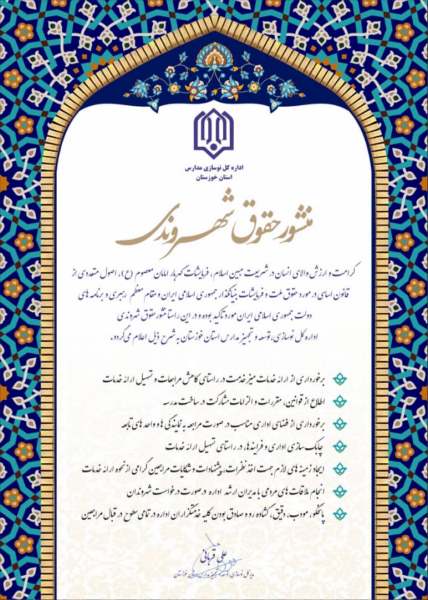 اداره کل نوسازی مدارس
استان خوزستان
منشور حقوق شهروندی
کرامت و ارزش والای انسان در شریعت مبین اسلام، فرمایشات گهربار امامان معصوم (ع)، اصول متعددی از
قانون اساسی در مورد حقوق ملت و فرمایشات بنیانگذار جمهوری اسلامی ایران و مقام معظم رهبری و برنامه های
دولت جمهوری اسلامی ایران مورد تاکید بوده و در این راستا منشور حقوق شهروندی
اداره کل نوسازی، توسعه و تجهیز مدارس استان خوزستان به شرح ذیل اعلام می گردد.
برخورداری از ارائه خدمات میز خدمت در راستای کاهش مراجعات و تسهیل ارائه خدمات
اطلاع از قوانین، مقررات و الزامات مشارکت در ساخت مدرسه
برخورداری از فضای اداری مناسب در صورت مراجعه به نمایندگی ها و واحدهای تابعه
چابک سازی اداری و فرایندها، در راستای تسهیل ارائه خدمات
ایجاد زمینه های لازم جهت اخذ نظرات، پیشنهادات و شکایات مراجعین گرامی از نحوه ارائه خدمات
انجام ملاقات های مردمی با مدیران ارشد اداره در صورت درخواست شهروندان
پاسخگو، مودب، دقیق، گشاده رو و صادق بودن کلیه خدمتگزاران اداره در تمامی سطوح در قبال مراجعین
علی قربانی